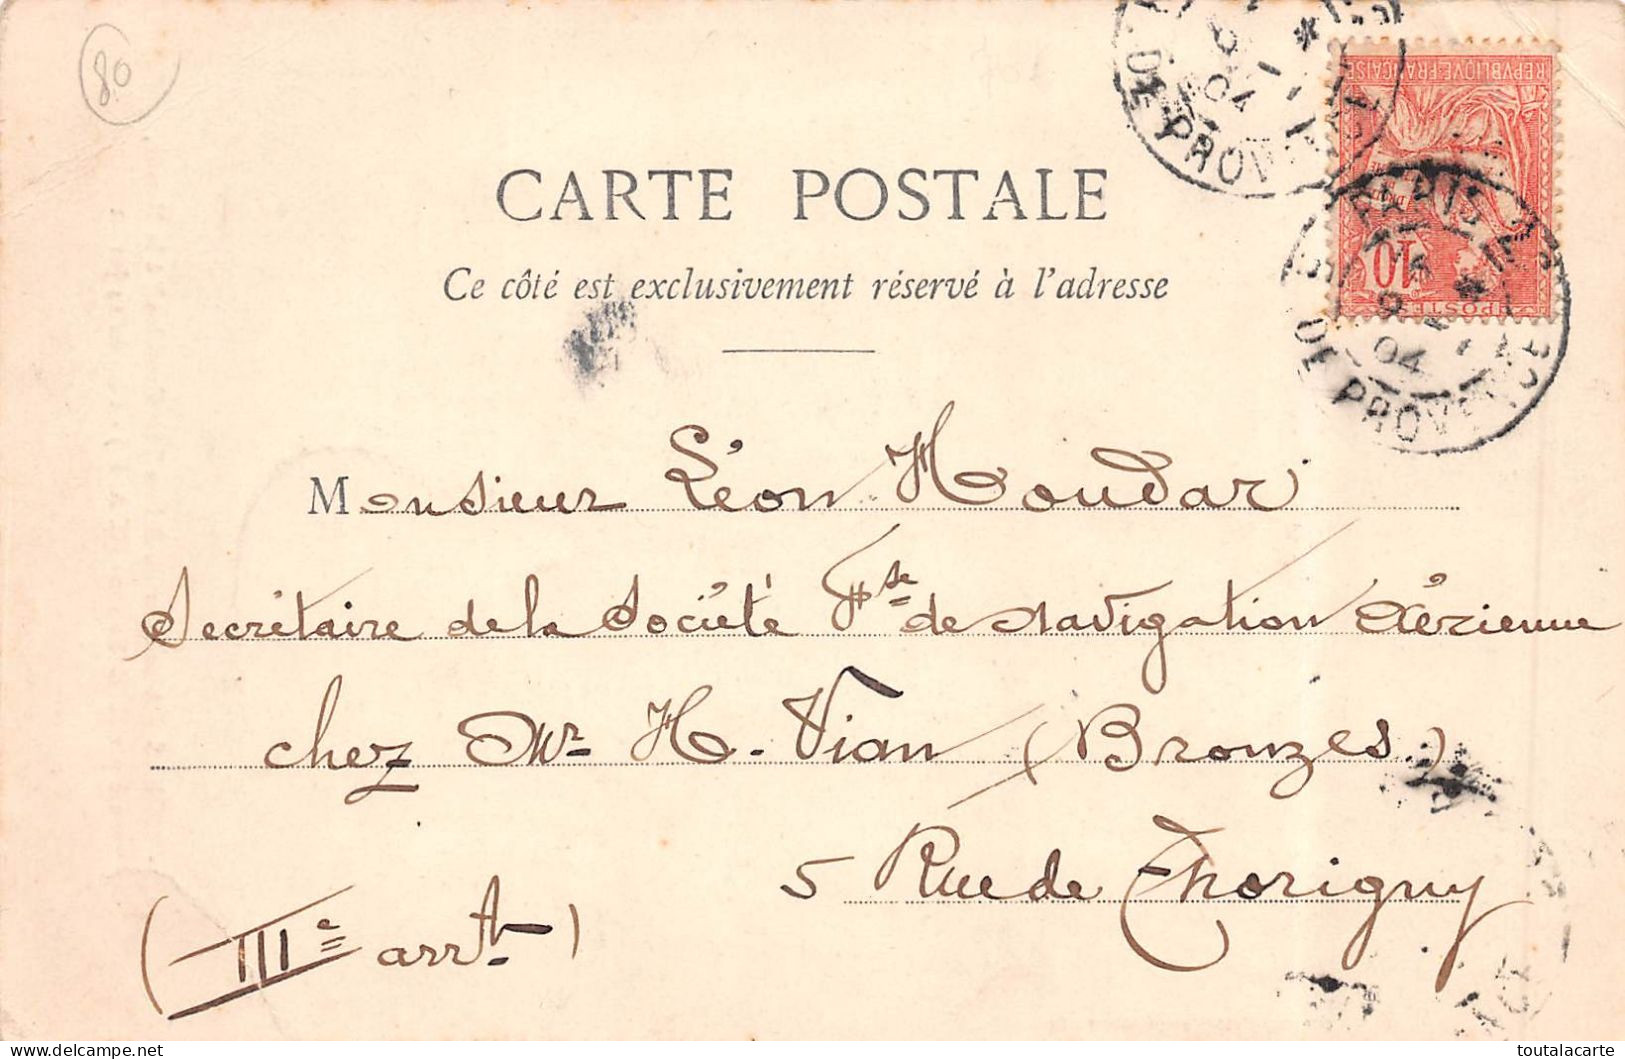 80
REPVBLIQVE FRANÇAISE
10
POSTES
DE PROV
04
PARIS
DE PROV
04
CARTE POSTALE
Ce côté est exclusivement réservé à l'adresse
Monsieur Léon Houdar
Secrétaire de la Société Fse de Navigation Aérienne
chez Mr H. Vian (Bronzes)
5 Rue de Thorigny
(IIIe arrt)
toutalacarte